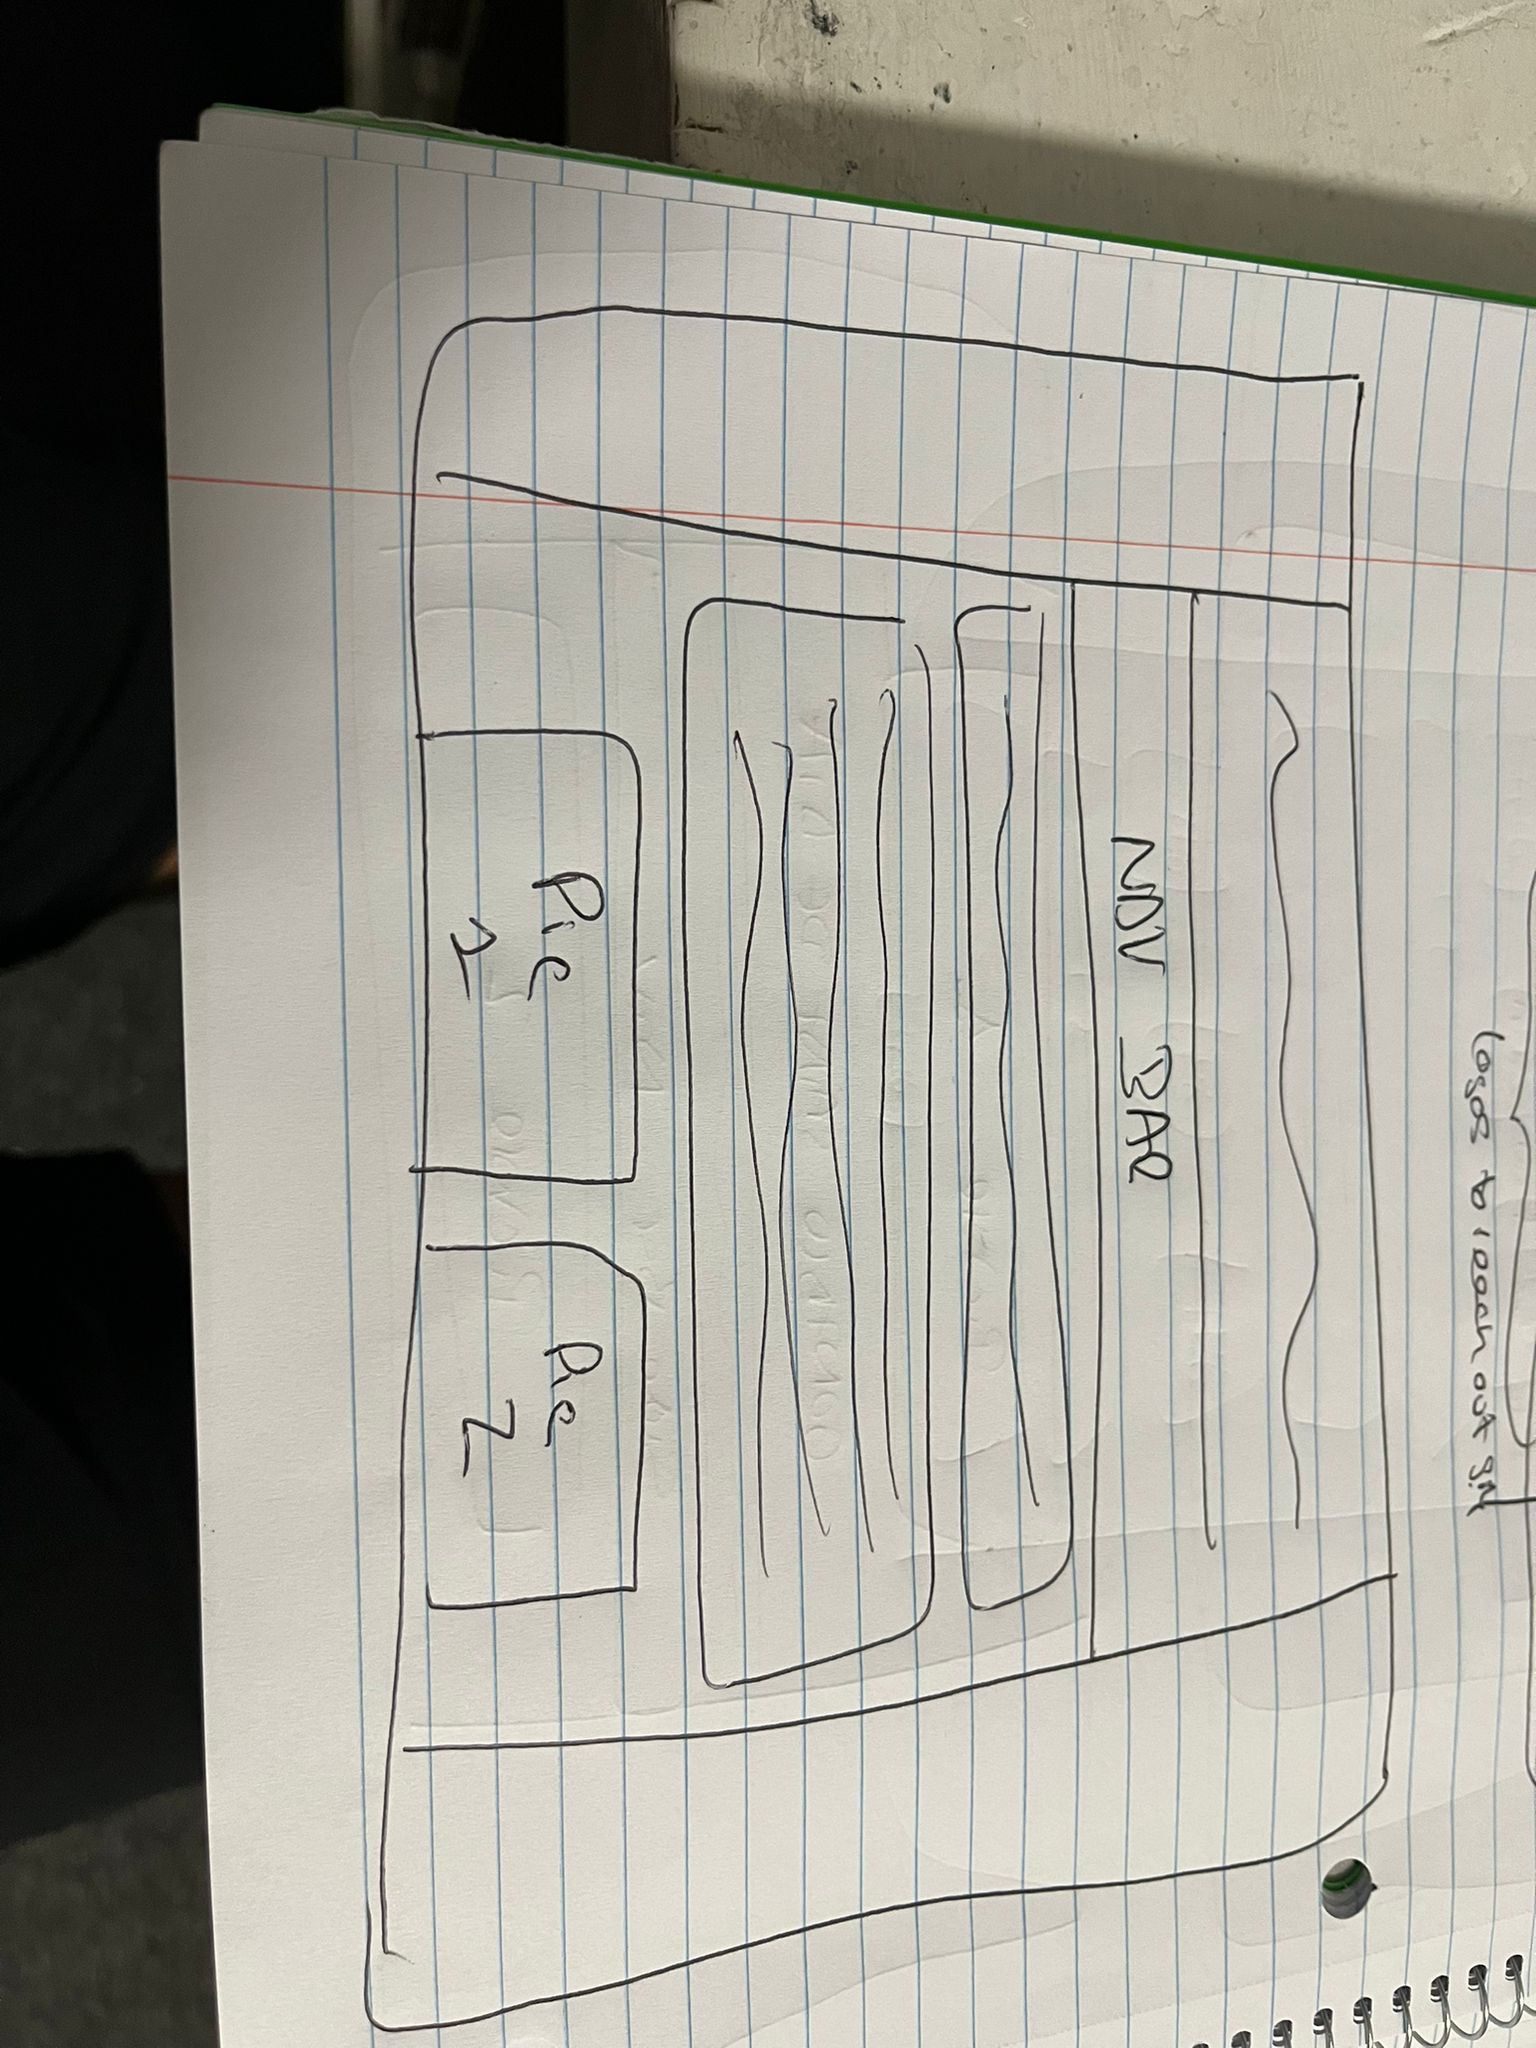 Logos to reach out
NAV BAR
Pic
1
Pic
2